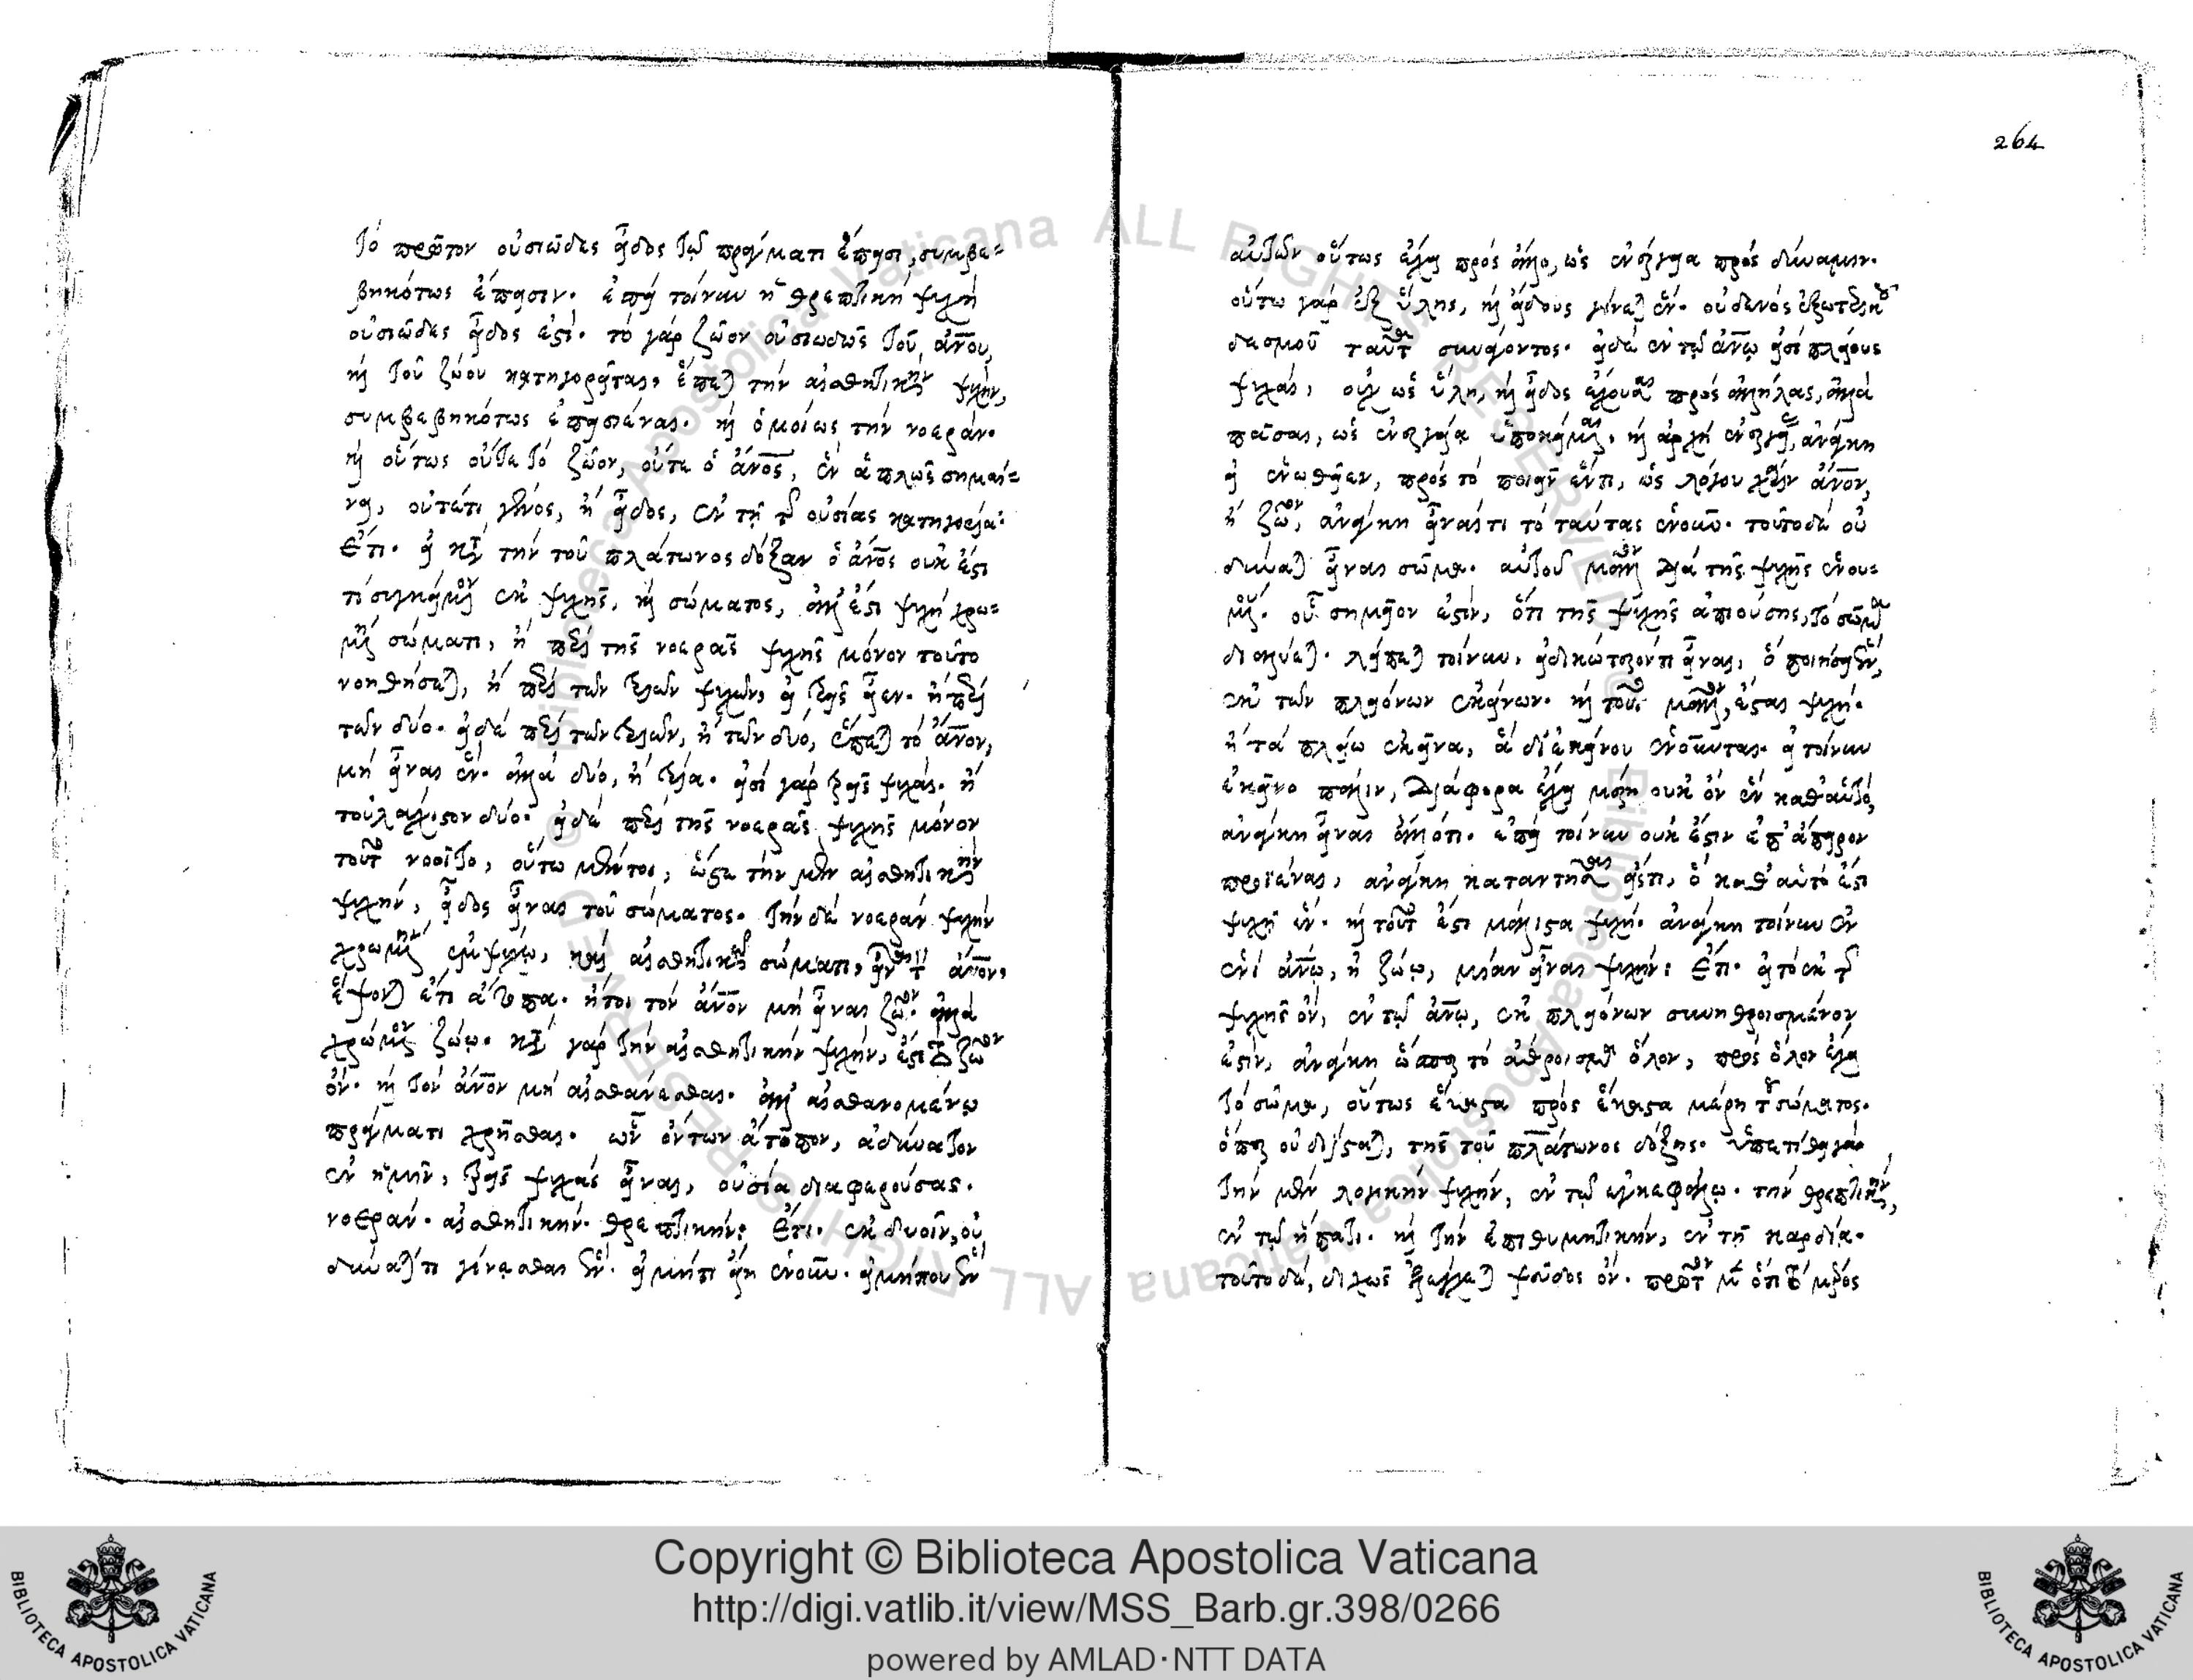 τὸ πρῶτον οὐσιῶδες εἶδος τῷ πράγματι ἔπεισι, συμβε=
βηκότως ἔπεισιν. ἐπεὶ τοίνυν ἡ θρεπτικὴ ψυχὴ
οὐσιῶδες εἶδος ἐστί. τὸ γὰρ ζῶον οὐσιωδῶς τοῦ ἀν̅ου,
καὶ τοῦ ζώου κατηγορεῖται, ἕπεται τὴν αἰσθητικὴν ψυχὴν,
συμβεβηκότως ἐπεισιέναι. καὶ ὁμοίως τὴν νοεράν.
καὶ οὕτως οὔτε τὸ ζῶον, οὔτε ὁ ἄν̅ος, ἓν ἁπλῶς σημαί=
νει, οὔτέτι γένος, ἢ εἶδος, ἐν τῇ τῆς οὐσίας κατηγορίᾳ:
Ἔτι. εἰ κατὰ τὴν τοῦ πλάτωνος δόξαν ὁ ἄν̅ος οὐκ ἔστι
τὶ συγκείμενον ἐκ ψυχῆς, καὶ σώματος, ἀλλ' ἔστι ψυχὴ χρω=
μένη σώματι, ἢ περὶ τῆς νοερᾶς ψυχῆς μόνον τοῦτο
νοηθήσεται, ἢ περὶ τῶν τριῶν ψυχῶν, εἰ τρεῖς εἶεν. ἢ περὶ
τῶν δύο. εἰ δὲ περὶ τῶν τριῶν, ἢ τῶν δύο, ἕπεται τὸ ἄν̅ον,
μὴ εἶναι ἕν. ἀλλὰ δύο, ἢ τρία. εἰσὶ γὰρ τρεῖς ψυχαί. ἢ
τοὐλάχιστον δύο. εἰ δὲ περὶ τῆς νοερᾶς ψυχῆς μόνον
τοῦτο νοοῖτο, οὕτω μέντοι, ὥστε τὴν μὲν αἰσθητικὴν
ψυχὴν, εἶδος εἶναι τοῦ σώματος. τὴν δὲ νοερὰν ψυχὴν
χρωμένην ἐμψύχῳ, καὶ αἰσθητικῷ σώματι, εἶναι τὸν ἄν̅ον,
ἕψονται ἔτι ἄτοπα. ἤτοι τὸν ἄν̅ον μὴ εἶναι ζῶον. ἀλλὰ
χρώμενον ζώῳ. κατὰ γὰρ τὴν αἰσθητικὴν ψυχὴν, ἐστὶ τὸ ζῶον
ὄν. καὶ τὸν ἄν̅ον μὴ αἰσθάνεσθαι. ἀλλ' αἰσθανομένῳ
πράγματι χρῆσθαι. ὧν ὄντων ἀτόπων, ἀδύνατον
ἐν ἡμῖν, τρεῖς ψυχὰς εἶναι, οὐσίᾳ διαφερούσας.
νοεράν. αἰσθητικήν. θρεπτικήν: Ἔτι. ἐκ δυοῖν, οὐ
δύναταί τι γίνεσθαι ἕν. εἰ μή τι εἴη ἑνοῦν. εἰ μήπου ἓν
264
αὐτῶν οὕτως ἔχει πρὸς ἄλλο, ὡς ἐνέργεια πρὸς δύναμιν.
οὕτω γὰρ ἐξ ὕλης, καὶ εἴδους γίνεται ἕν. οὐδενὸς ἐξωτερικοῦ
δεσμοῦ ταῦτα συνάγοντος. εἰ δὲ ἐν τῷ ἀν̅ῳ εἰσὶ πλείους
ψυχαὶ, οὐχ ὡς ὕλη, καὶ εἶδος ἔχουσαι πρὸς ἀλλήλας, ἀλλὰ
πᾶσαι, ὡς ἐνέργειαι ὑποκείμεναι, καὶ ἀρχὴ ἐνεργείας, ἀνάγκη
εἰ ἑνωθεῖεν, πρὸς τὸ ποιεῖν ἕν τι, ὡς λόγου χάριν ἄν̅ον,
ἢ ζῶον, ἀνάγκη εἶναί τι τὸ ταύτας ἑνοῦν. τοῦτο δὲ οὐ
δύναται εἶναι σῶμα. αὐτοῦ μᾶλλον διὰ τῆς ψυχῆς ἑνου=
μένου. οὗ σημεῖον ἐστὶν, ὅτι τῆς ψυχῆς ἀπιούσης, τὸ σῶμα
διαλύεται. λείπεται τοίνυν, εἰδικώτερόν τι εἶναι, ὃ ποιήσει ἓν,
ἐκ τῶν πλειόνων ἐκείνων. καὶ τοῦτο μᾶλλον, ἔσται ψυχή.
ἢ τὰ πλείω ἐκεῖνα, ἃ δι' ἐκείνου ἑνοῦνται. εἰ τοίνυν
ἐκεῖνο πάλιν, διάφορα ἔχει μέρη οὐκ ὂν ἓν καθ' αὑτό,
ἀνάγκη εἶναι ἄλλό τι. ἐπεὶ τοίνυν οὐκ ἔστιν ἐπ' ἄπειρον
προϊέναι, ἀνάγκη καταντῆσαι εἴς τι, ὃ καθ' αὑτὸ ἐστὶ
ψυχὴ ἕν. καὶ τοῦτο ἐστὶ μάλιστα ψυχή. ἀνάγκη τοίνυν ἐν
ἑνὶ ἀν̅ῳ, ἢ ζώῳ, μίαν εἶναι ψυχήν: Ἔτι. εἰ τὸ ἐκ τῆς
ψυχῆς ὂν, ἐν τῷ ἀν̅ῳ, ἐκ πλειόνων συνηθροισμένον
ἐστὶν, ἀνάγκη ὥσπερ τὸ ἄθροισμα ὅλον, πρὸς ὅλον ἔχει
τὸ σῶμα, οὕτως ἕκαστα πρὸς ἕκαστα μέρη τοῦ σώματος.
ὅπερ οὐ διΐσταται, τῆς τοῦ πλάτωνος δόξης. ὑπετίθει γὰρ
τὴν μὲν λογικὴν ψυχὴν, ἐν τῷ ἐγκεφάλῳ. τὴν θρεπτικὴν,
ἐν τῷ ἥπατι. καὶ τὴν ἐπιθυμητικὴν, ἐν τῇ καρδίᾳ.
τοῦτο δὲ, διχῶς ἐξελέγχεται ψεῦδος ὄν. πρῶτον μὲν ὅτι τὸ μέρος
Copyright © Biblioteca Apostolica Vaticana
http://digi.vatlib.it/view/MSS_Barb.gr.398/0266
powered by AMLAD·NTT DATA
BIBLIOTECA APOSTOLICA VATICANA
BIBLIOTECA APOSTOLICA VATICANA